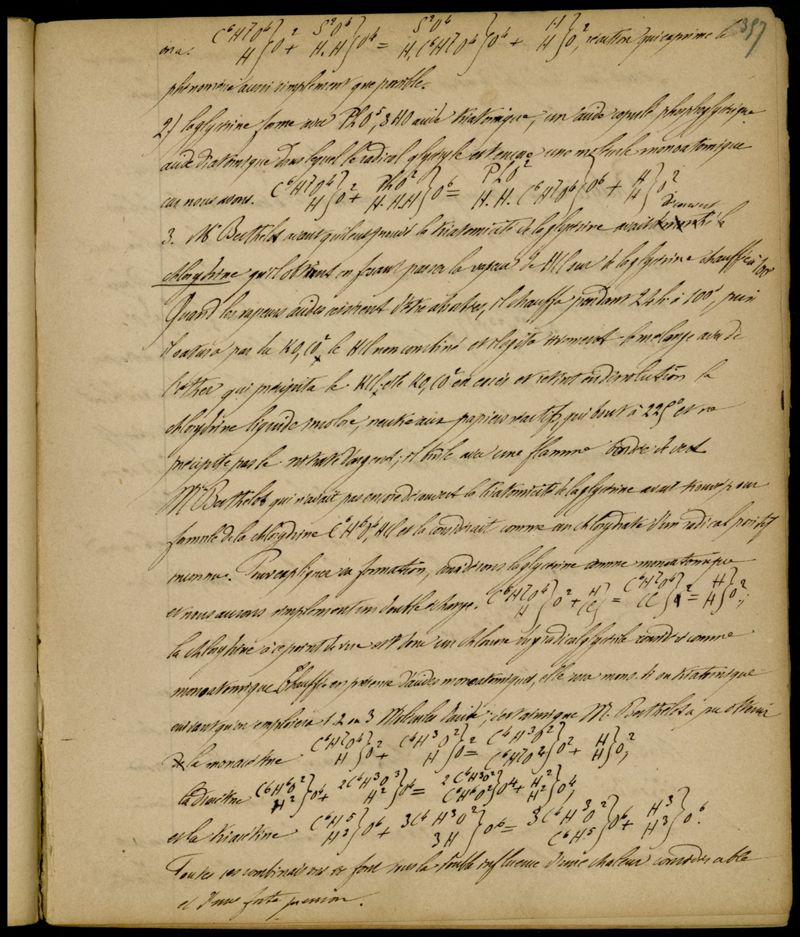 397
on a. C⁶H⁷O⁴}O² + S²O⁴}O⁴ = S²O⁴}O⁴ + H}O², réaction qui exprime le
H} H.H} H,C⁶H⁷O⁴} H}
phénomène aussi simplement que possible.
2) la glycérine forme avec PhO⁵, 3HO acide triatomique, un acide appelé phosphoglycérique
acide diatomique dans lequel le radical glycéryle est encore une molécule monoatomique
car nous avons. C⁶H⁷O⁴}O² + PhO²}O⁶ = PhO²}O⁶ + H}O²
H} H.H.H} H.H.C⁶H⁷O⁴} H}
3. Mr Berthelot avant qu'il eut prouvé la triatomicité de la glycérine avait découvert la
chlorydrine qu'il obtient en faisant passer la vapeur de HCl sur de la glycérine chauffée à 100°
Quand les vapeurs acides cessent d'être absorbées, il chauffe pendant 24h à 100°, puis
il sature par du KO,CO² le HCl non combiné et il agite vivement le mélange avec de
l'éther qui précipite le KCl et le KO,CO² en excès et retient en dissolution la
chlorydrine liquide incolore, neutre aux papiers réactifs, qui bout à 225° et ne
précipite pas le nitrate d'argent; il brûle avec une flamme bordée de vert
Mr Berthelot qui n'avait pas encore découvert la triatomicité de la glycérine avait trouvé pour
formule de la chlorydrine C⁶H⁶O⁴,HCl et la considérait comme un chlorydrate d'un radical positif
inconnu. Pour expliquer sa formation, considérons la glycérine comme monoatomique
et nous aurons simplement un double échange. C⁶H⁷O⁴}O² + H} = C⁶H⁷O⁴} + H}O²;
H} Cl} Cl} H}
la chlorydrine à ce point de vue est donc un chlorure du radical glycéryle considéré comme
monoatomique. Chauffée en présence d'acides monoatomiques, elle sera mono, di ou triatomique
suivant qu'on emploiera 1 2 ou 3 Molécules d'acide; c'est ainsi que M. Berthelot a pu obtenir
la monacétine C⁶H⁷O⁴}O² + C⁴H³O²}O² = C⁴H³O²}O² + H}O²,
H} H} C⁶H⁷O⁴} H}
la diacétine C⁶H⁶O²}O⁴ + 2C⁴H³O²}O⁴ = 2C⁴H³O²}O⁴ + H²}O⁴,
H²} H²} C⁶H⁶O²} H²}
et la triacétine C⁶H⁵}O⁶ + 3C⁴H³O²}O⁶ = 3C⁴H³O²}O⁶ + H³}O⁶.
H³} 3H} C⁶H⁵} H³}
Toutes ces combinaisons se font sous la double influence d'une chaleur considérable
et d'une forte pression.